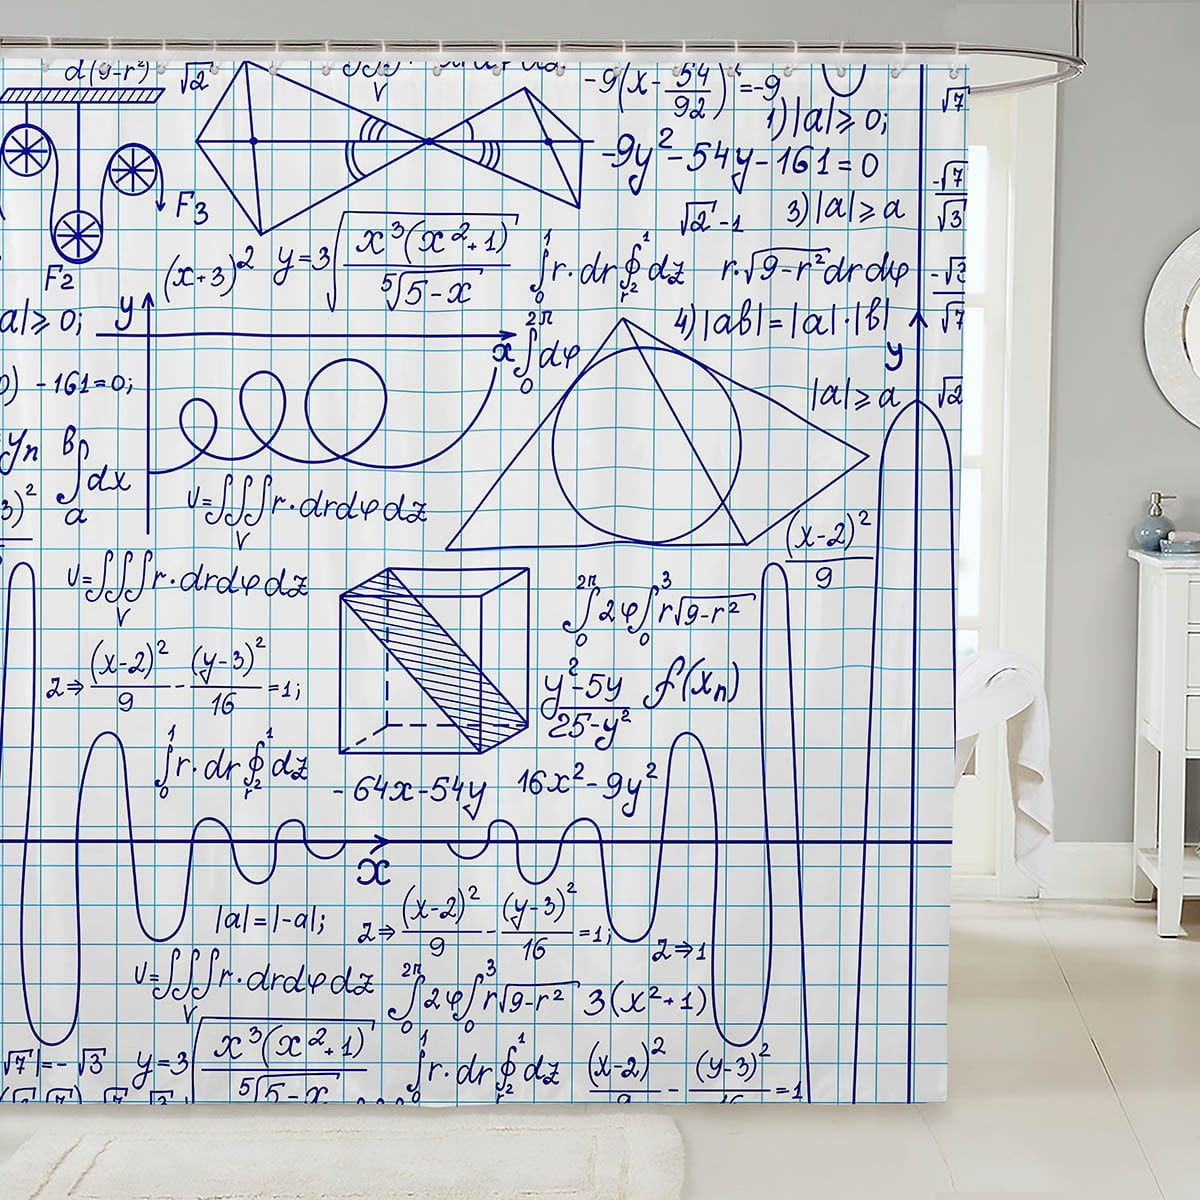 d(9-r²)
√2
-9(x-54/92)²=-9
√7
1) |a|⩾0;
-9y²-54y-161=0
-√7/√3
F3
√2-1
3) |a|⩾a
F2
(x+3)²
y=3√(x³(x²+1)/⁵√5-x)
∫₀¹r·dr∮dz
r·√9-r²drdφ
a|⩾0;
y
x
∫₀²ᴨdφ
4) |ab|=|a|·|b|
√7
y
-161=0;
|a|⩾a
√2
yn
∫dx
a
3)²
V=∫∫∫r·drdφdz
V
(x-2)²/9
V=∫∫∫r·drdφdz
V
∫₀²ᴨ2φ∫₀³r√9-r²
2⇒(x-2)²/9-(y-3)²/16=1;
y²-5y/25-y²
f(xn)
∫₀¹r·dr∮dz
-64x-54y
16x²-9y²
x
|a|=|-a|;
2⇒(x-2)²/9-(y-3)²/16=1;
2⇒1
V=∫∫∫r·drdφdz
V
∫₀²ᴨ2φ∫₀³r√9-r²
3(x²+1)
√7|=-√3
y=3√(x³(x²+1)/⁵√5-x)
∫₀¹r·dr∮dz
(x-2)²/9-(y-3)²/16=1